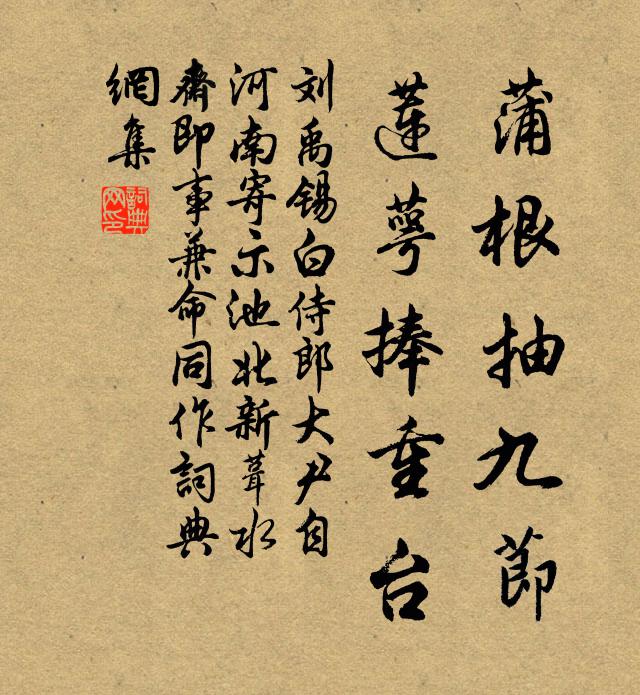 蒲根抽九節
蓮萼捧重台
刘禹锡白侍郎大尹自
河南寄示池北新葺水
齋即事兼命同作詞典
網集
詞典
网印